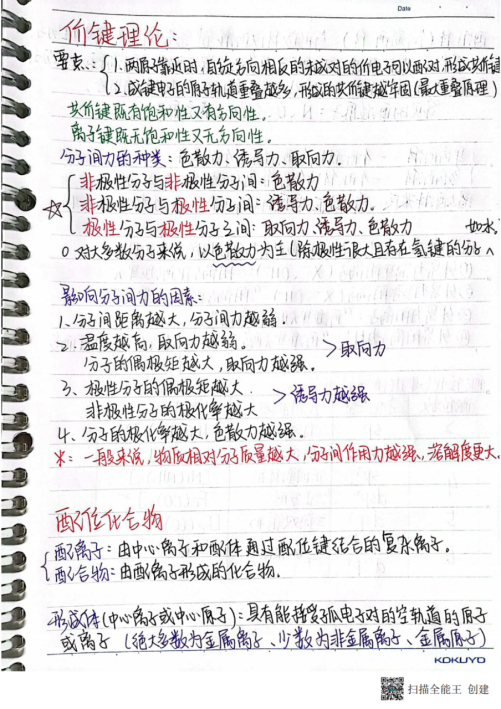 Date
价键理论:
要点:{1.两原靠近时,自旋方向相反的未成对的价电子可以配对,形成共价键
2.成键电子的原子轨道重叠越多,形成的共价键越牢固(最大重叠原理)
共价键既有饱和性又有方向性。
离子键既无饱和性又无方向性。
分子间力的种类:色散力、诱导力、取向力.
☆{非极性分子与非极性分子间:色散力
非极性分子与极性分子间:诱导力、色散力.
极性分子与极性分子之间:取向力、诱导力、色散力
如水,
O 对大多数分子来说,以色散力为主(除极性很大且存在氢键的分子^
影响分子间力的因素:
1、分子间距离越大,分子间力越弱.
2、温度越高,取向力越弱.
分子的偶极矩越大,取向力越强. >取向力
3、极性分子的偶极矩越大
非极性分子的极化率越大 >诱导力越强
4、分子的极化率越大,色散力越强.
※:一般来说,物质相对分子质量越大,分子间作用力越强,溶解度更大.
配位化合物
{配离子:由中心离子和配体通过配位键结合的复杂离子。
配合物:由配离子形成的化合物.
形成体(中心离子或中心原子):具有能接受孤电子对的空轨道的原子
或离子 (绝大多数为金属离子、少数为非金属离子、金属原子)
KOKUYO
扫描全能王 创建